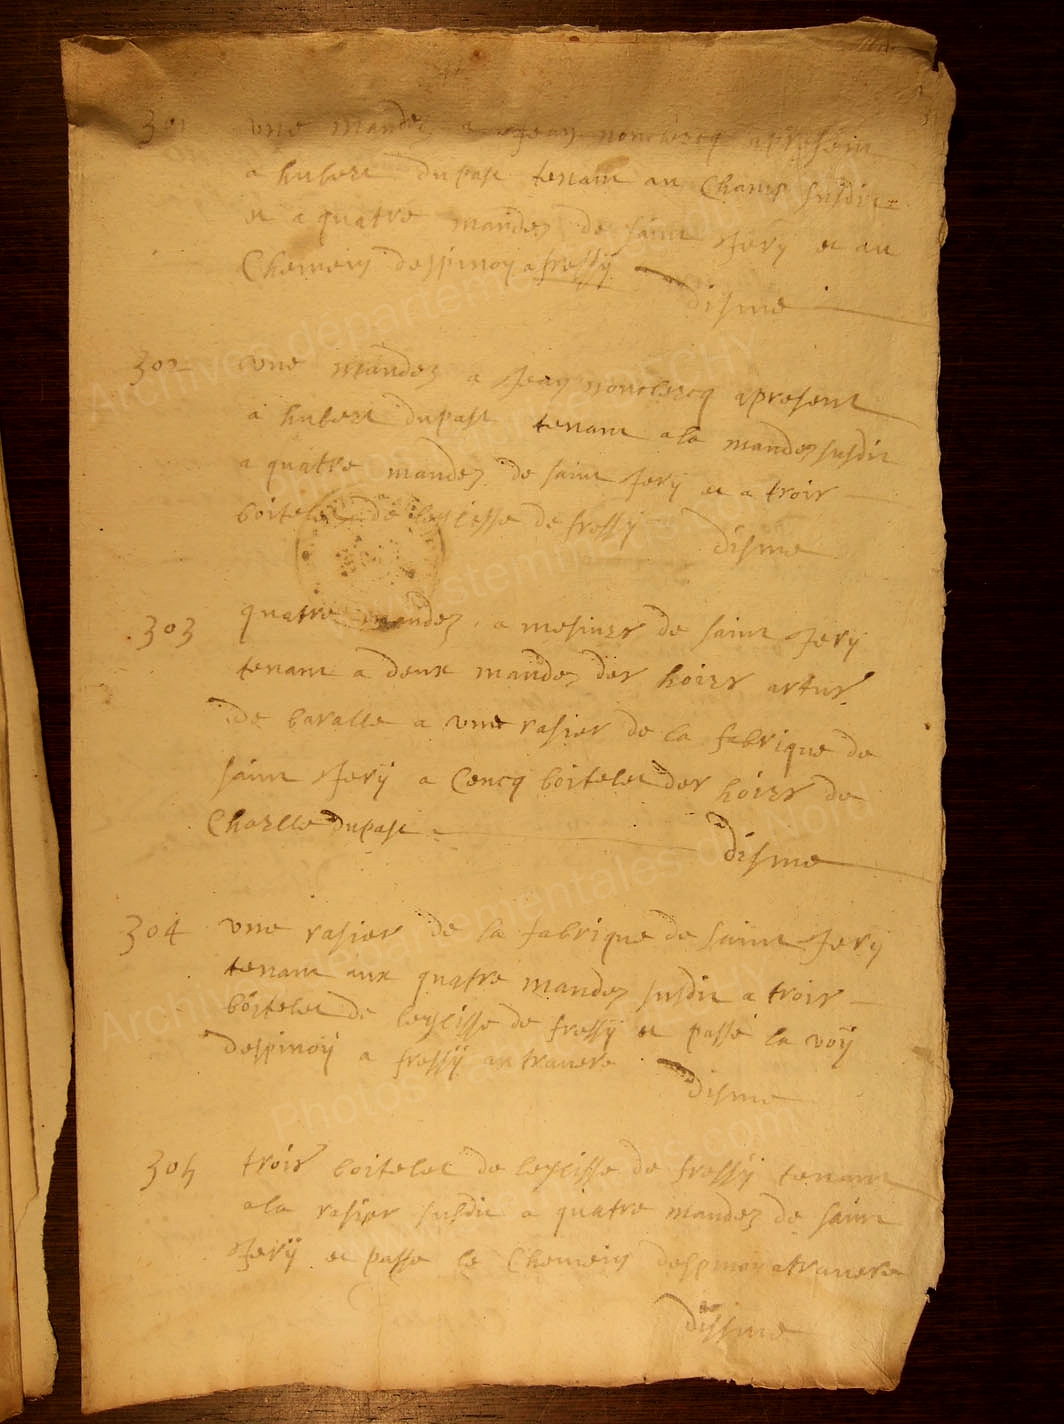 301 une mandez a Jean nonclercq apresent
a hubert dupast tenant au Champs susdit
et a quatre mandez de saint Jery et au
Chemein despinoy a fressÿ disme
302 une mandez a Jean nonclercq apresent
a hubert dupast tenant ala mandez susdit
a quatre mandez de saint Jerÿ et a trois
boitelet de leglisse de fressÿ disme
303 quatre mandez a mesiurs de saint Jerÿ
tenant a deux mandez des hoirs artus
de baralle a une rasier de la fabrique de
saint Jerÿ a Cencq boitelet des hoirs de
Charlle dupast disme
304 une rasier de la fabrique de saint Jerÿ
tenant aux quatre mandez susdit a trois
boitelet de leglisse de fressÿ et passé la voÿ
despinoÿ a fressÿ au travere disme
305 trois boitelet de leglisse de fressÿ tenant
ala rasier susdit a quatre mandez de saint
Jerÿ et passe le Chemein despinoy atravere
dissme
Archives départementales du Nord
Photos Laurent DISCHY
www.stemmadis.com
Archives départementales du Nord
Photos Laurent DISCHY
www.stemmadis.com